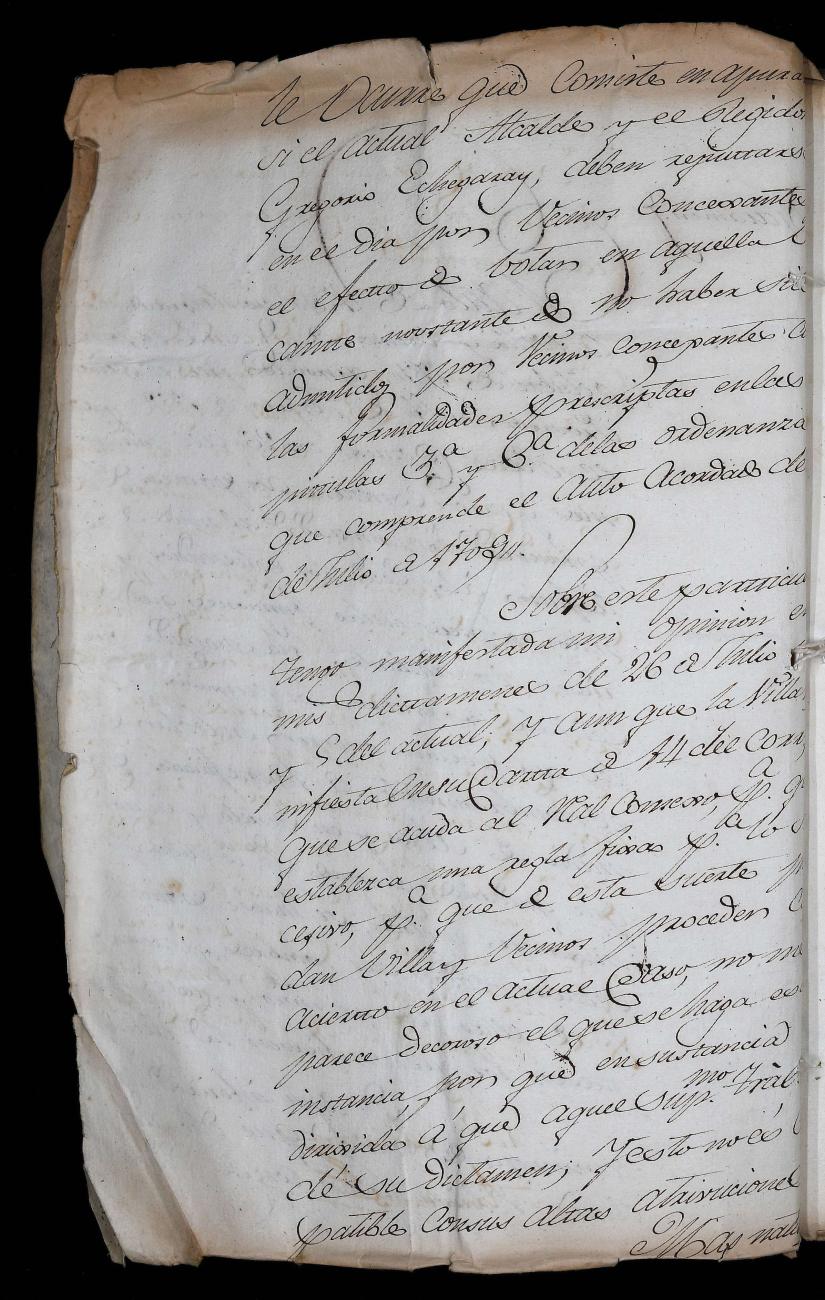 le Ocurre que Consiste en apura
si el actual Alcalde y el Regidor
Gregorio Echegaray, deben reputtarse
en el dia por Vecinos Concexantes
el efectto de bottar en aquella
cantte nostante de no haber si
admitidos por Vecinos concexantes
las formalidades prescriptas en las
pittulas 3.ª y 6.ª de las ordenanza
que comprende el Auto Acordado de
de Julio de 1794.
Sobre este parttic
tengo manifestada mi opinion en
mis dicttamenes de 26 de Julio
y 5 del actual; Y aunque la Villa
nifiesta en su Cartta de 14 del Corr
que se acuda al Rl Consexo, p.ª q
establezca una regla fixa p.ª lo
cesivo, p.ª que de esta suerte p
dan Villa y Vecinos proceder c
aciertto en el actual Caso, no m
parece decoroso el que se haga es
instancia, por que en sustancia
dirixida á que aquel sup.mo Tral
dé su dictamen; Y esto no és
patible con sus altas atrivucione
Mas natu